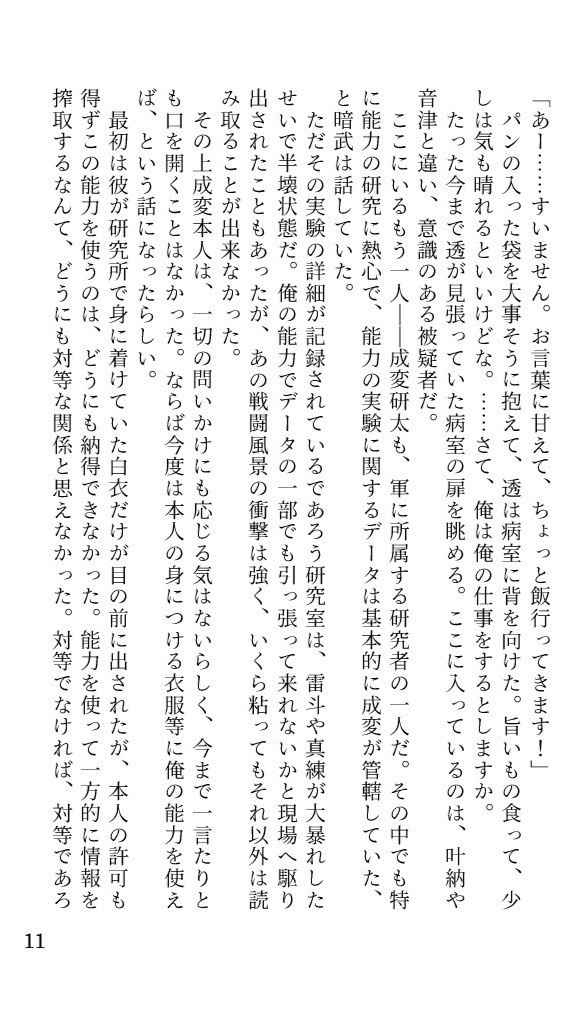 「あー……すいません。お言葉に甘えて、ちょっと飯行ってきます！」
　パンの入った袋を大事そうに抱えて、透は病室に背を向けた。旨いもの食って、少
しは気も晴れるといいけどな。……さて、俺は俺の仕事をするとしますか。
　たった今まで透が見張っていた病室の扉を眺める。ここに入っているのは、叶納や
音津と違い、意識のある被疑者だ。
　ここにいるもう一人――成変研太も、軍に所属する研究者の一人だ。その中でも特
に能力の研究に熱心で、能力の実験に関するデータは基本的に成変が管轄していた、
と暗武は話していた。
　ただその実験の詳細が記録されているであろう研究室は、雷斗や真練が大暴れした
せいで半壊状態だ。俺の能力でデータの一部でも引っ張って来れないかと現場へ駆り
出されたこともあったが、あの戦闘風景の衝撃は強く、いくら粘ってもそれ以外は読
み取ることが出来なかった。
　その上成変本人は、一切の問いかけにも応じる気はないらしく、今まで一言たりと
も口を開くことはなかった。ならば今度は本人の身につける衣服等に俺の能力を使え
ば、という話になったらしい。
　最初は彼が研究所で身に着けていた白衣だけが目の前に出されたが、本人の許可も
得ずこの能力を使うのは、どうにも納得できなかった。能力を使って一方的に情報を
搾取するなんて、どうにも対等な関係と思えなかった。対等でなければ、対等であろ
11